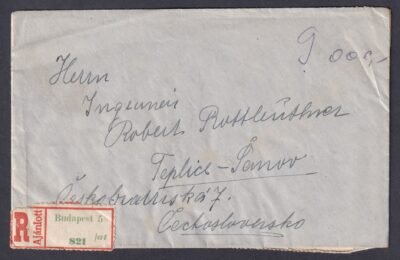 9 000,-
Herrn
Ingenieur
Robert Rottleuthner
Teplice-Šanov
Českobratrská 7.
Čechoslovensko
R
Ajánlott
Budapest 5
821